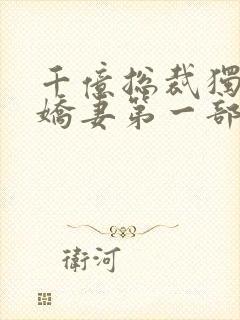 千億總裁獨
嬌妻第一部
衛河